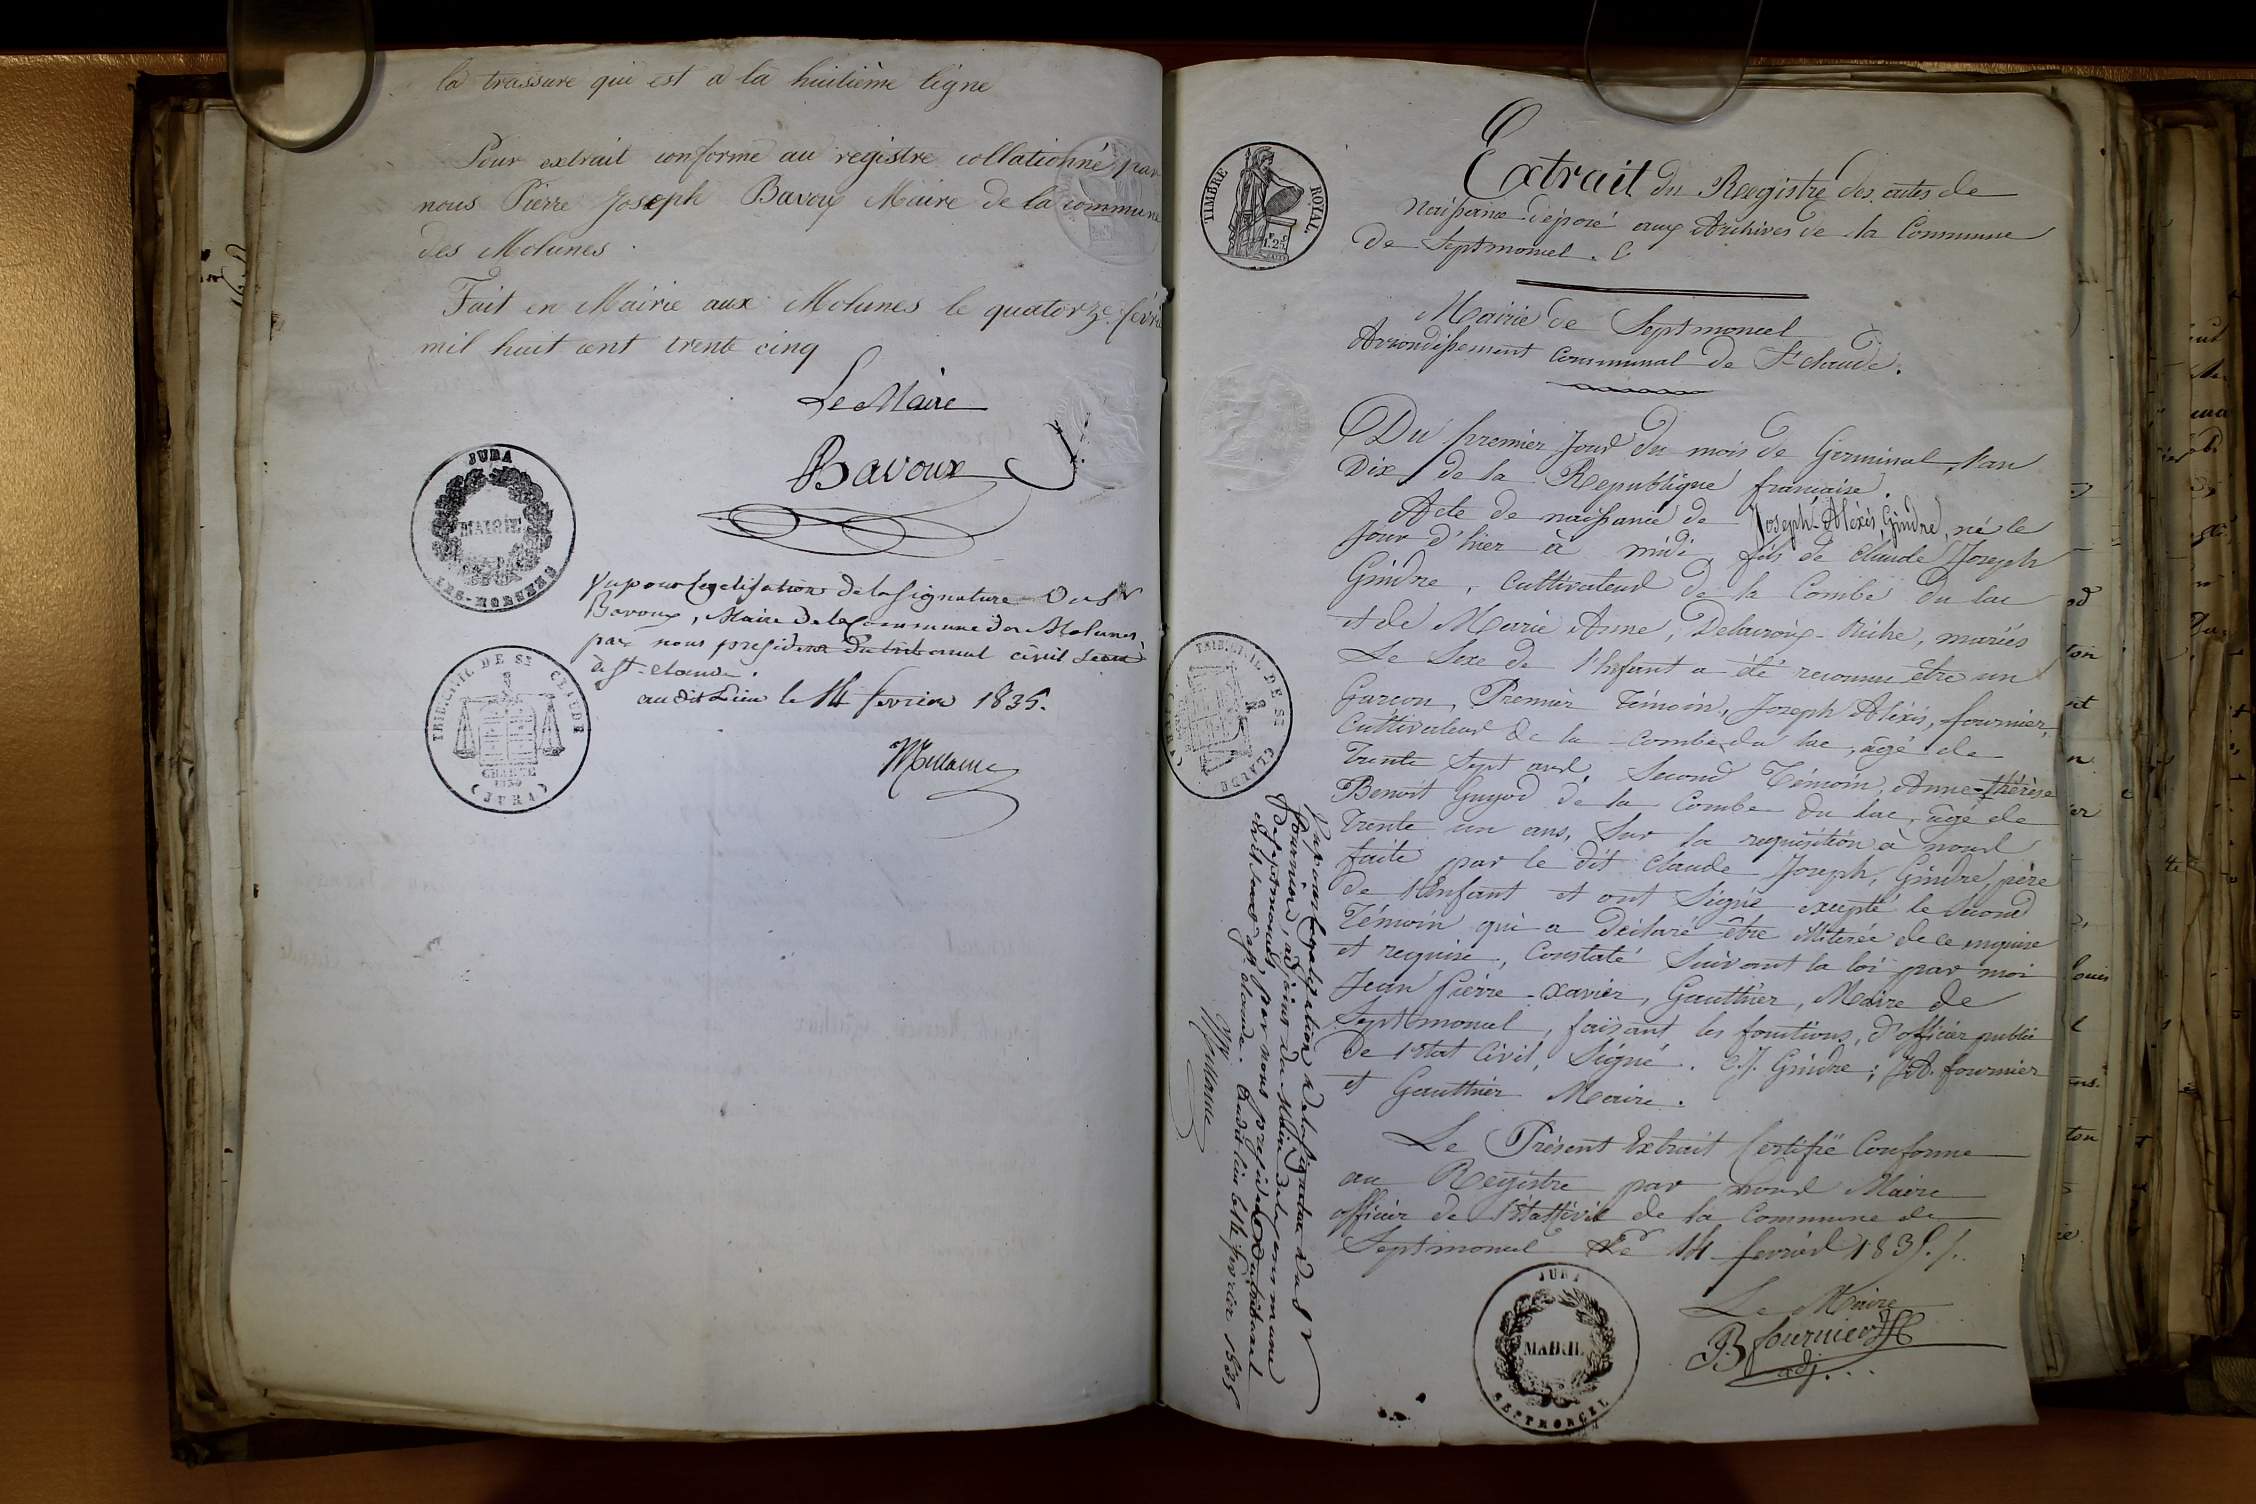 la trassure qui est a la huitième ligne
Pour extrait conforme au registre collationné par
nous Pierre Joseph Bavoux Maire de la commune
des Molunes.
Fait en Mairie aux Molunes le quatorze févri
mil huit cent trente cinq
Le Maire
Bavoux
JURA
MAIRIE
Vu pour legalisation de la signature du Sr
Bavoux, Maire de la Commune des Molunes,
par nous president du tribunal civil seant
à St Claude.
au dit Lieu le 14 fevrier 1835.
TRIB. CIVIL DE ST CLAUDE
CHARTE
1830
(JURA)
TIMBRE ROYAL
Extrait du Reegistre des actes de
Naissance déposé aux Archives de la Commune
de Septmoncel.
Mairie de Septmoncel
Arrondissement Communal de St Claude.
Du premier Jour du mois de Germinal, l'an
Dix de la Republique francaise.
Acte de naissance de Joseph-Aléxis Gindre, né le
Jour d'hier à midi, fils de Claude Joseph
Gindre, Cultivateur de la Combe du lac
et de Marie Anne, Delacroix-Riche, mariés
Le Sexe de l'hefant a été reconnu être un
Garçon, Premier Témoin, Joseph Aléxis, fournier,
Cultivateur de la Combe du lac, âgé de
trente sept ans, Second Témoin, Anne-thérèse
Benoit Guyod de la Combe du lac, âgé de
trente un ans, Sur la requisition à nous
faite par le dit Claude Joseph, Gindre, père
de l'Enfant et ont Signé excepté le Second
Témoin qui a déclaré être illiterée de ce enquise
et requise, Constaté Suivant la loi par moi
Jean Pierre-Xavier, Gauthier, Maire de
Septmoncel, faisant les fonctions, d'officier public
de l'Etat Civil, Signé. C.J. Gindre; J.A. fournier
et Gauthier Maire.
Le Présent Extrait Certifié Conforme
au Registre par nous Maire
officier de l'état Civil de la Commune de
Septmoncel Le 14 fevrier 1835.
Le Maire
B fournier
adj.
JURA
MAIRIE
SEPTMONCEL
TRIB. CIVIL DE ST CLAUDE
Vu pour legalisation de la signature du Sr
fournier, adjoint du Maire de la commune
de Septmoncel, par nous president du tribunal
civil seant à St Claude. Au dit lieu le 14 fevrier 1835